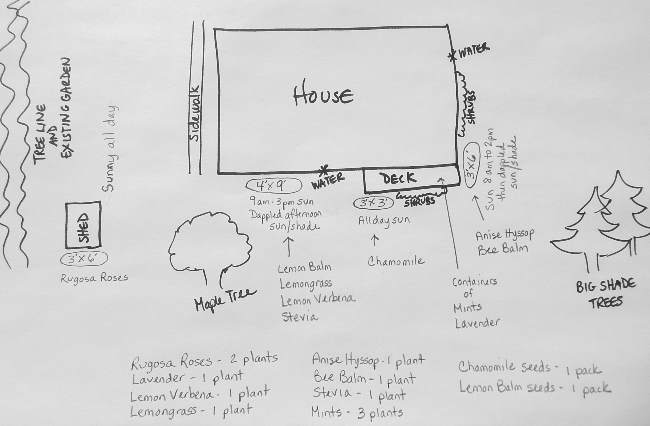 WATER
HOUSE
Sidewalk
SHRUBS
TREE LINE
AND
EXISTING GARDEN
Sunny all day
SHED
3'x6'
Rugosa Roses
4'x9'
WATER
9am-3pm sun
Dappled afternoon
sun/shade
Lemon Balm
Lemongrass
Lemon Verbena
Stevia
Maple Tree
DECK
SHRUBS
3'x3'
All day sun
Chamomile
3'x6'
Sun 8am to 2pm
then dappled
sun/shade
Anise Hyssop
Bee Balm
Containers
of
Mints
Lavender
BIG SHADE
TREES
Rugosa Roses - 2 plants
Lavender - 1 plant
Lemon Verbena - 1 plant
Lemongrass - 1 plant
Anise Hyssop - 1 plant
Bee Balm - 1 plant
Stevia - 1 plant
Mints - 3 plants
Chamomile seeds - 1 pack
Lemon Balm seeds - 1 pack